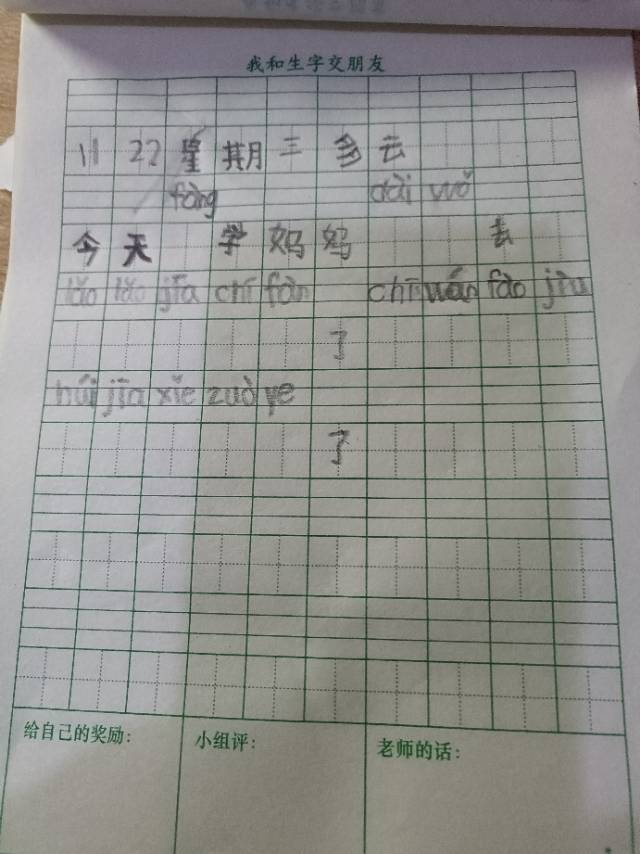 我和生字交朋友
11 22 星期三 多云
fàng dài wǒ
今天 学妈妈 去
lǎo lǎo jiā chī fàn chī wán fào jìu
了
húi jīa xiě zuò ye
了
给自己的奖励: 小组评: 老师的话: